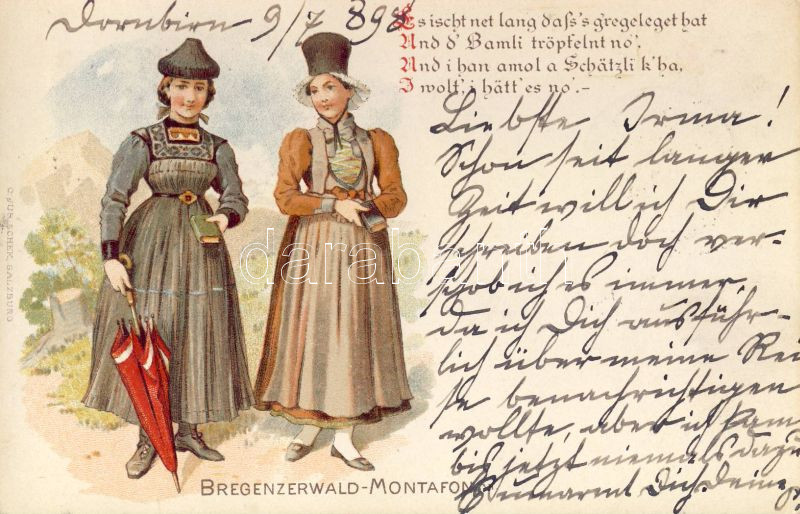 Dornbirn 9/7 898
Es ischt net lang daß's g'regeleget hat
Und d' Bamli tröpfelnt no',
Und i han amol a Schätzli k'ha,
I wolt', i hätt' es no'.-
Liebste Irma!
Schon seit langer
Zeit will ich Dir
schreiben doch ver-
schob ich es immer,
da ich Dich ausführ-
lich über meine Rei
se benachrichtigen
wollte, aber ich kam
bis jetzt niemals dazu
Es umarmt Dich Deine
darabanth
SALZBURG
BREGENZERWALD-MONTAFON